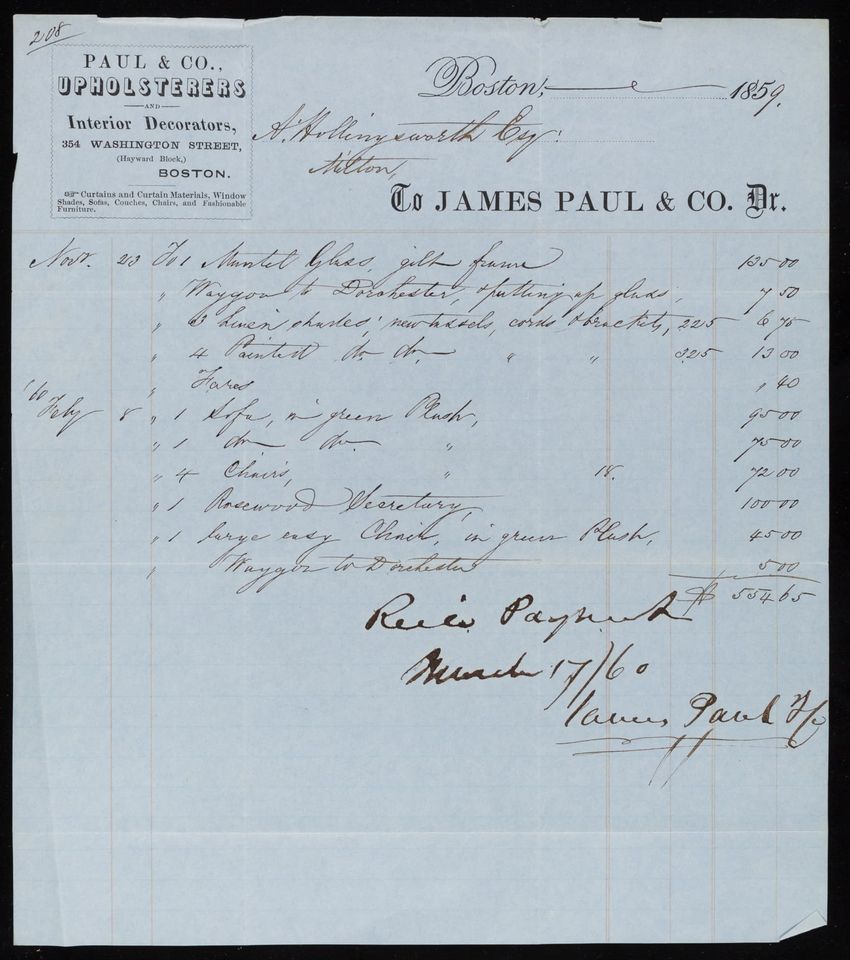 208
PAUL & CO.,
UPHOLSTERERS
AND
Interior Decorators,
354 WASHINGTON STREET,
(Hayward Block,)
BOSTON.
☞ Curtains and Curtain Materials, Window
Shades, Sofas, Couches, Chairs, and Fashionable
Furniture.
Boston, 1859.
A. Hollingsworth Esq.
Milton,
To JAMES PAUL & CO. Dr.
Novr. 23 To 1 Mantel Glass, gilt frame 135 00
" Waggon to Dorchester, & putting up glass, 7 50
" 3 Linen shades, new tassels, cords & brackets, 225 6 75
" 4 Painted do. do. " " 325 13 00
" Fares " 40
'60
Feby 8 " 1 Sofa, in green Plush, 95 00
" 1 do do. " 75 00
" 4 Chairs, " 18. 72 00
" 1 Rosewood Secretary, 100 00
" 1 large easy Chair, in green Plush, 45 00
" Waggon to Dorchester 5 00
$ 554 65
Rec'd Payment
March 17/60
James Paul & Co